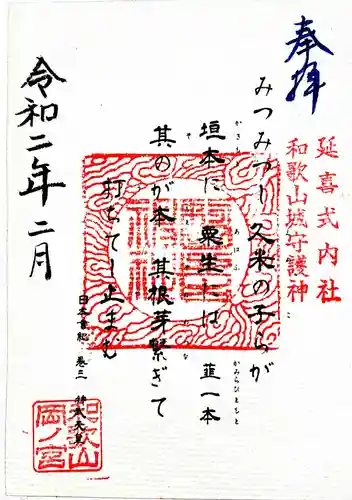 奉拝
延喜式内社
和歌山城守護神
みつみつし 久米の子らが
垣本に 粟生には 韮一本
其のが本 其根芽繋ぎて
打ちてし止まむ
日本書紀 巻三 神武天皇
令和二年 二月
和歌山
岡ノ宮